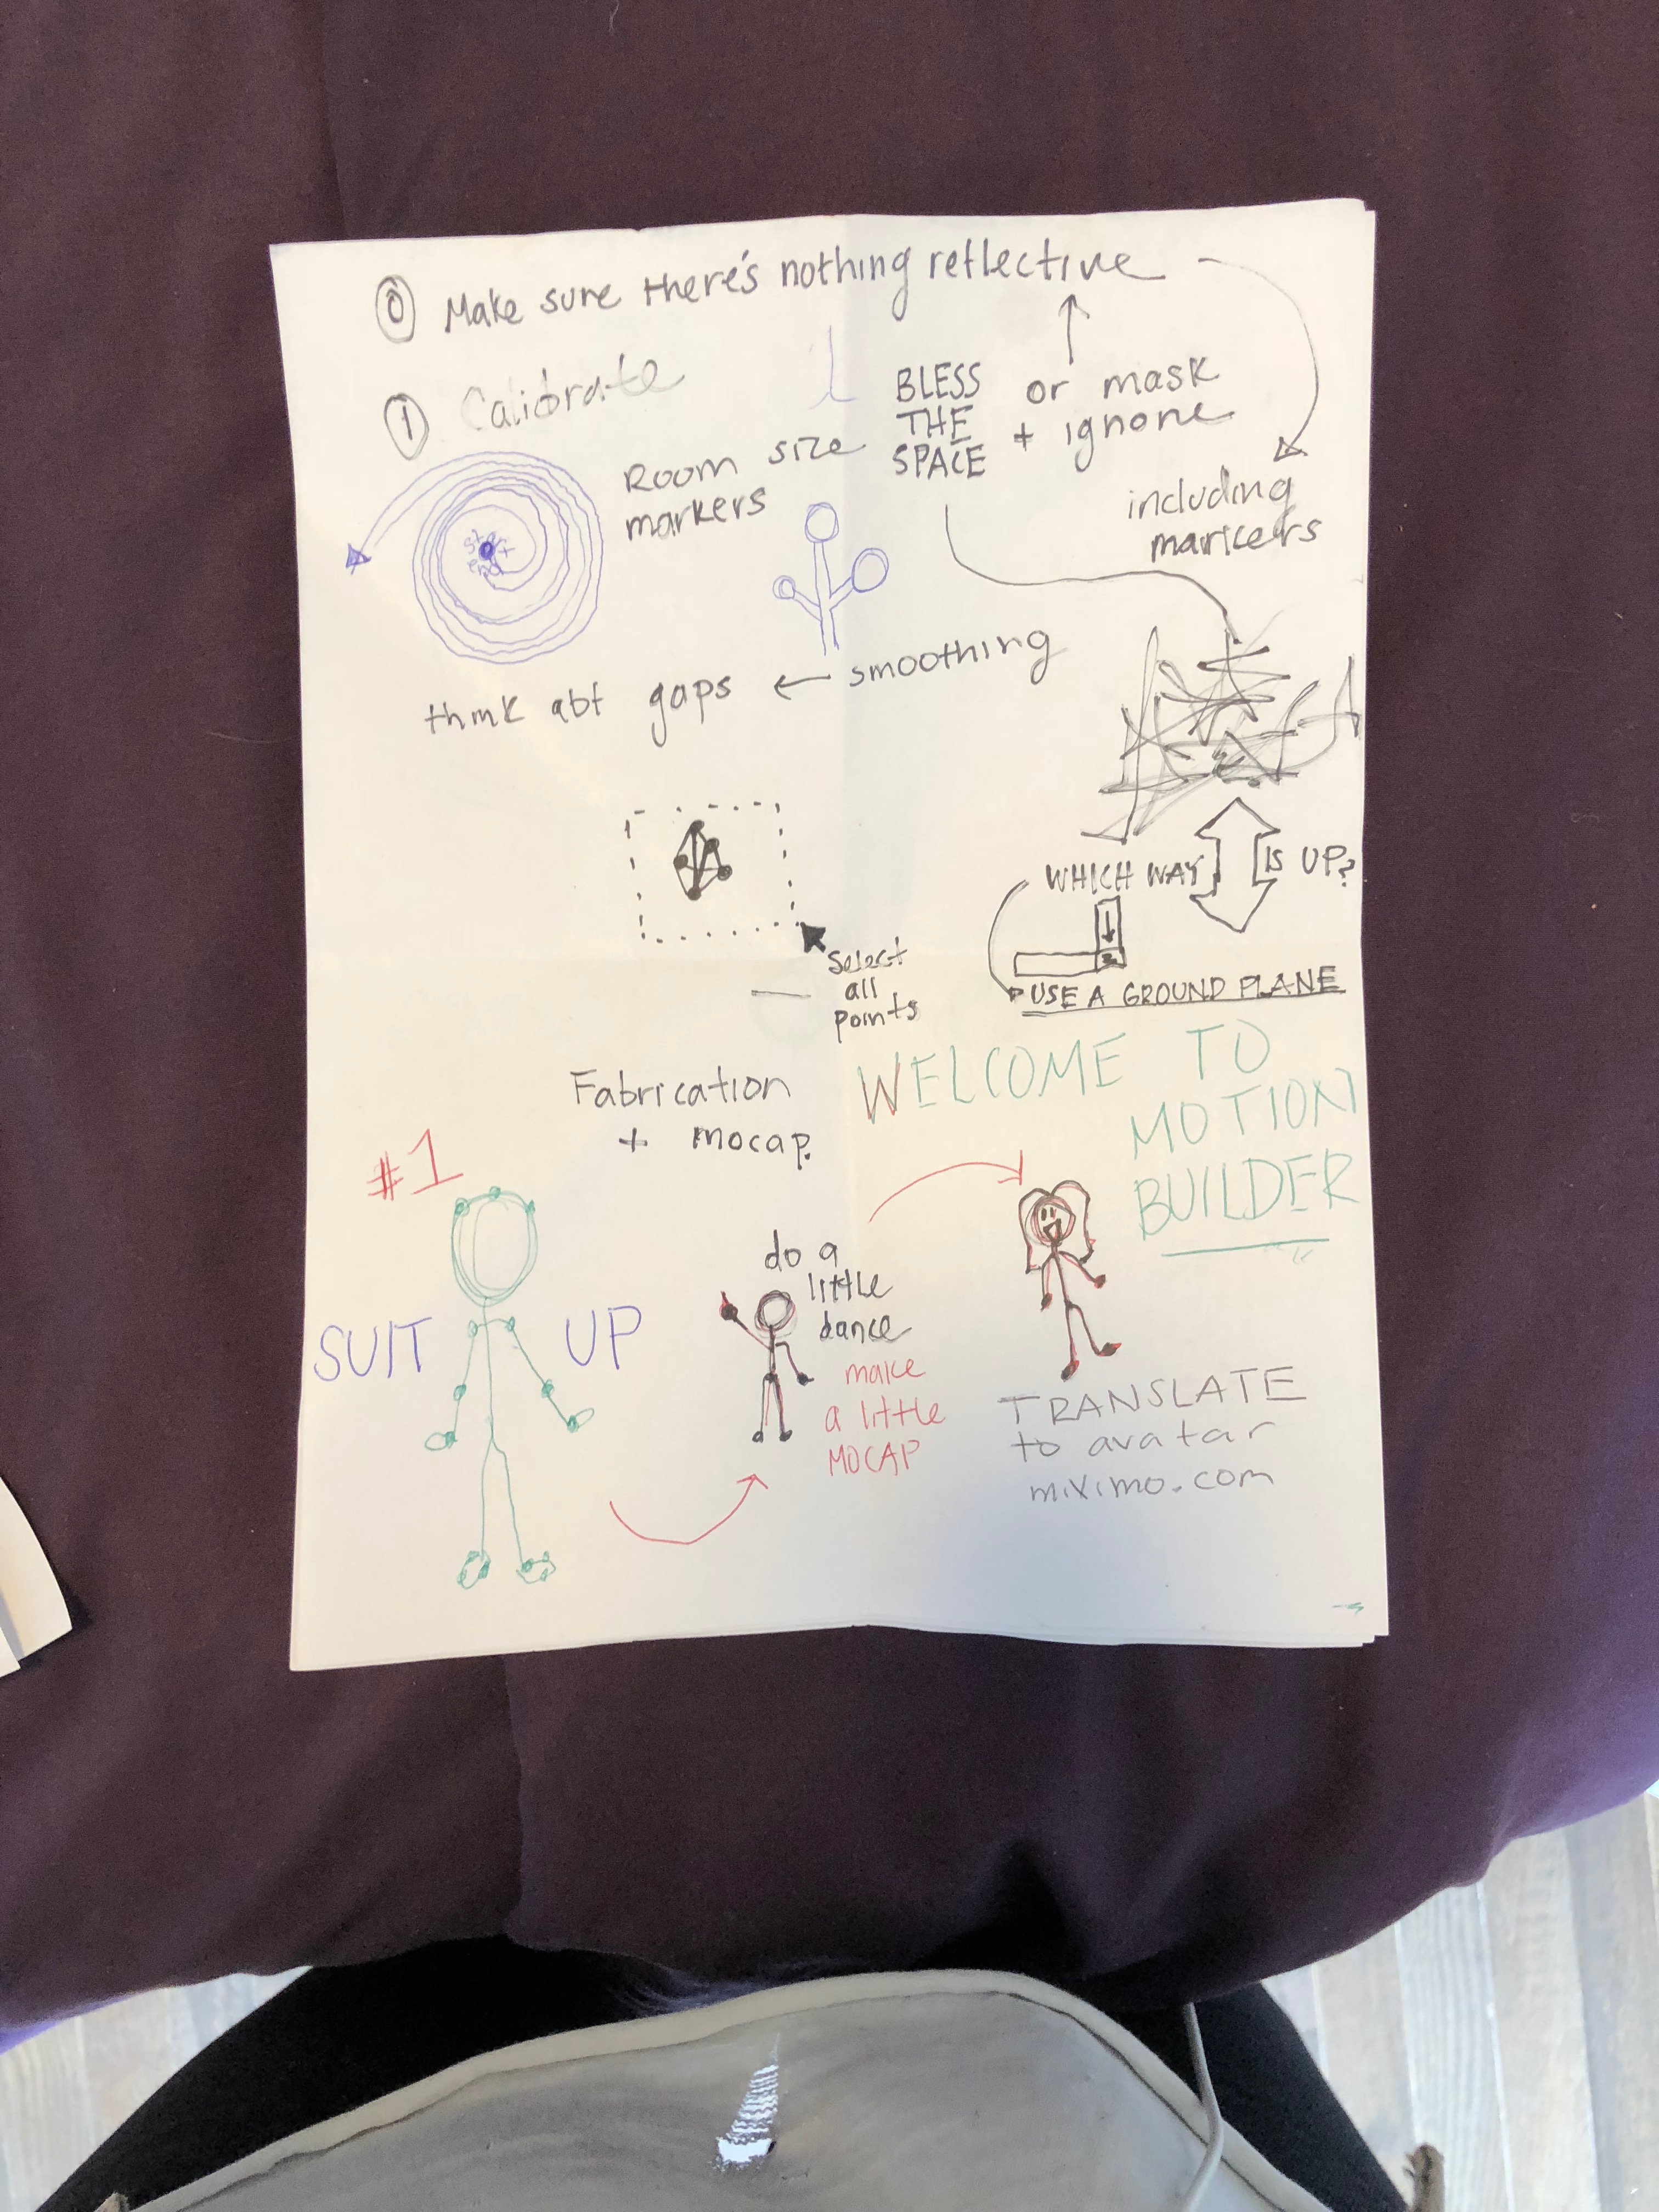 0 Make sure there's nothing reflective
1 Calibrate
BLESS
THE
SPACE
or mask
+ ignore
including
markers
Room size
markers
start
end
think abt gaps ← smoothing
WHICH WAY IS UP?
USE A GROUND PLANE
Select
all
points
Fabrication
+ mocap.
WELCOME TO
MOTION
BUILDER
#1
SUIT UP
do a
little
dance
make
a little
MOCAP
TRANSLATE
to avatar
miximo.com